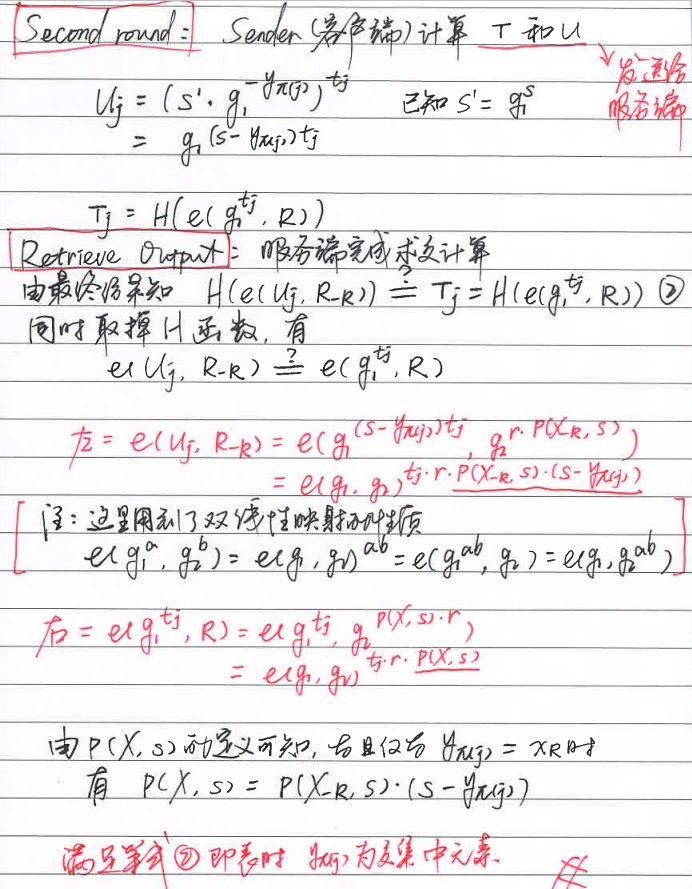 Second round: Sender(客户端)计算 T 和 U
↘ 发送给服务端
U_j = (S'·g_1^{-y_{π(j)}})^{t_j} 已知 S' = g_1^s
= g_1^{(s-y_{π(j)})t_j}
T_j = H(e(g_1^{t_j}, R))
Retrieve Output: 服务端完成求交计算
由最终结果知 H(e(U_j, R_{-k})) ≟ T_j = H(e(g_1^{t_j}, R)) ②
同时取掉 H 函数, 有
e(U_j, R_{-k}) ≟ e(g_1^{t_j}, R)
左 = e(U_j, R_{-k}) = e(g_1^{(s-y_{π(j)})t_j}, g_2^{r·P(X_{-k}, s)})
= e(g_1, g_2)^{t_j·r·P(X_{-k}, s)·(s-y_{π(j)})}
[注: 这里用到了双线性映射的性质
e(g_1^a, g_2^b) = e(g_1, g_2)^{ab} = e(g_1^{ab}, g_2) = e(g_1, g_2^{ab})]
右 = e(g_1^{t_j}, R) = e(g_1^{t_j}, g_2^{P(X,s)·r})
= e(g_1, g_2)^{t_j·r·P(X,s)}
由 P(X,s) 的定义可知, 当且仅当 y_{π(j)} = x_k 时
有 P(X,s) = P(X_{-k}, s)·(s-y_{π(j)})
满足等式② 即表时 y_{π(j)} 为交集中元素.